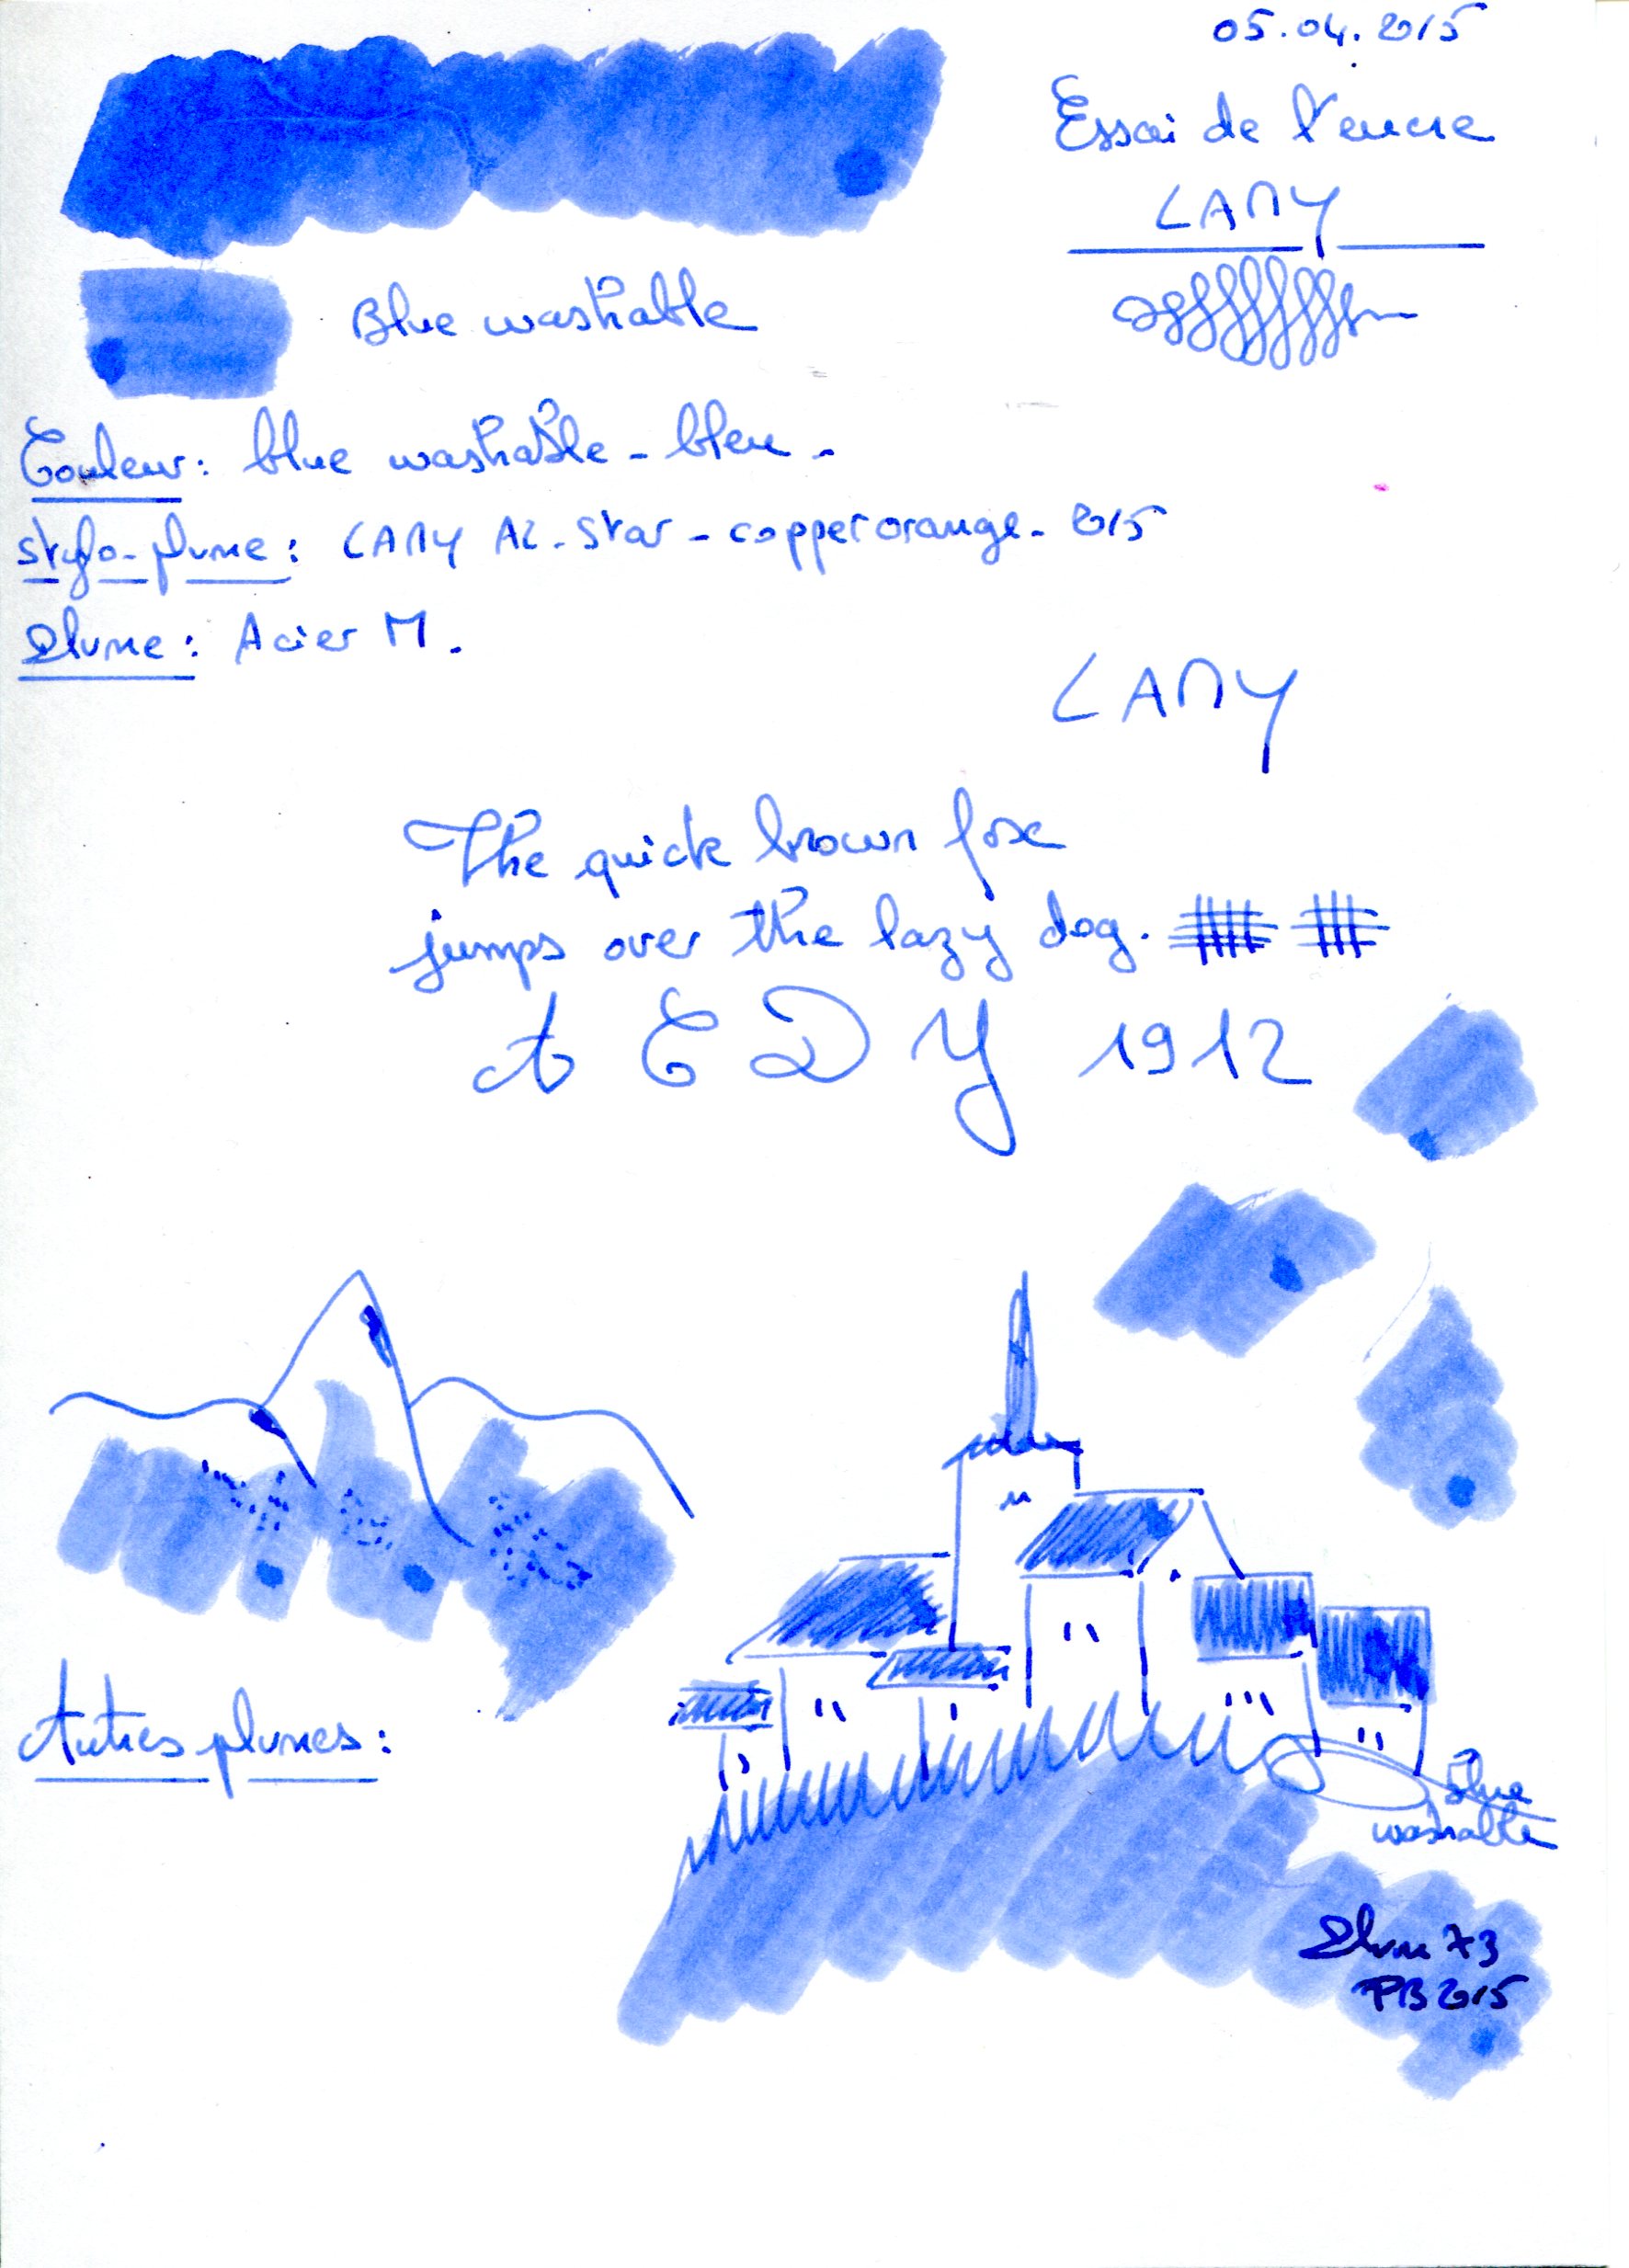 05.04.2015
Essai de l'encre
LAMY
Blue washable
Couleur: blue washable - bleu -
stylo-plume: LAMY AL-Star - copperorange - 2015
Plume: Acier M.
LAMY
The quick brown fox
jumps over the lazy dog.
A C D Y 1912
Autres plumes:
Blue
washable
Plume 73
PB 2015